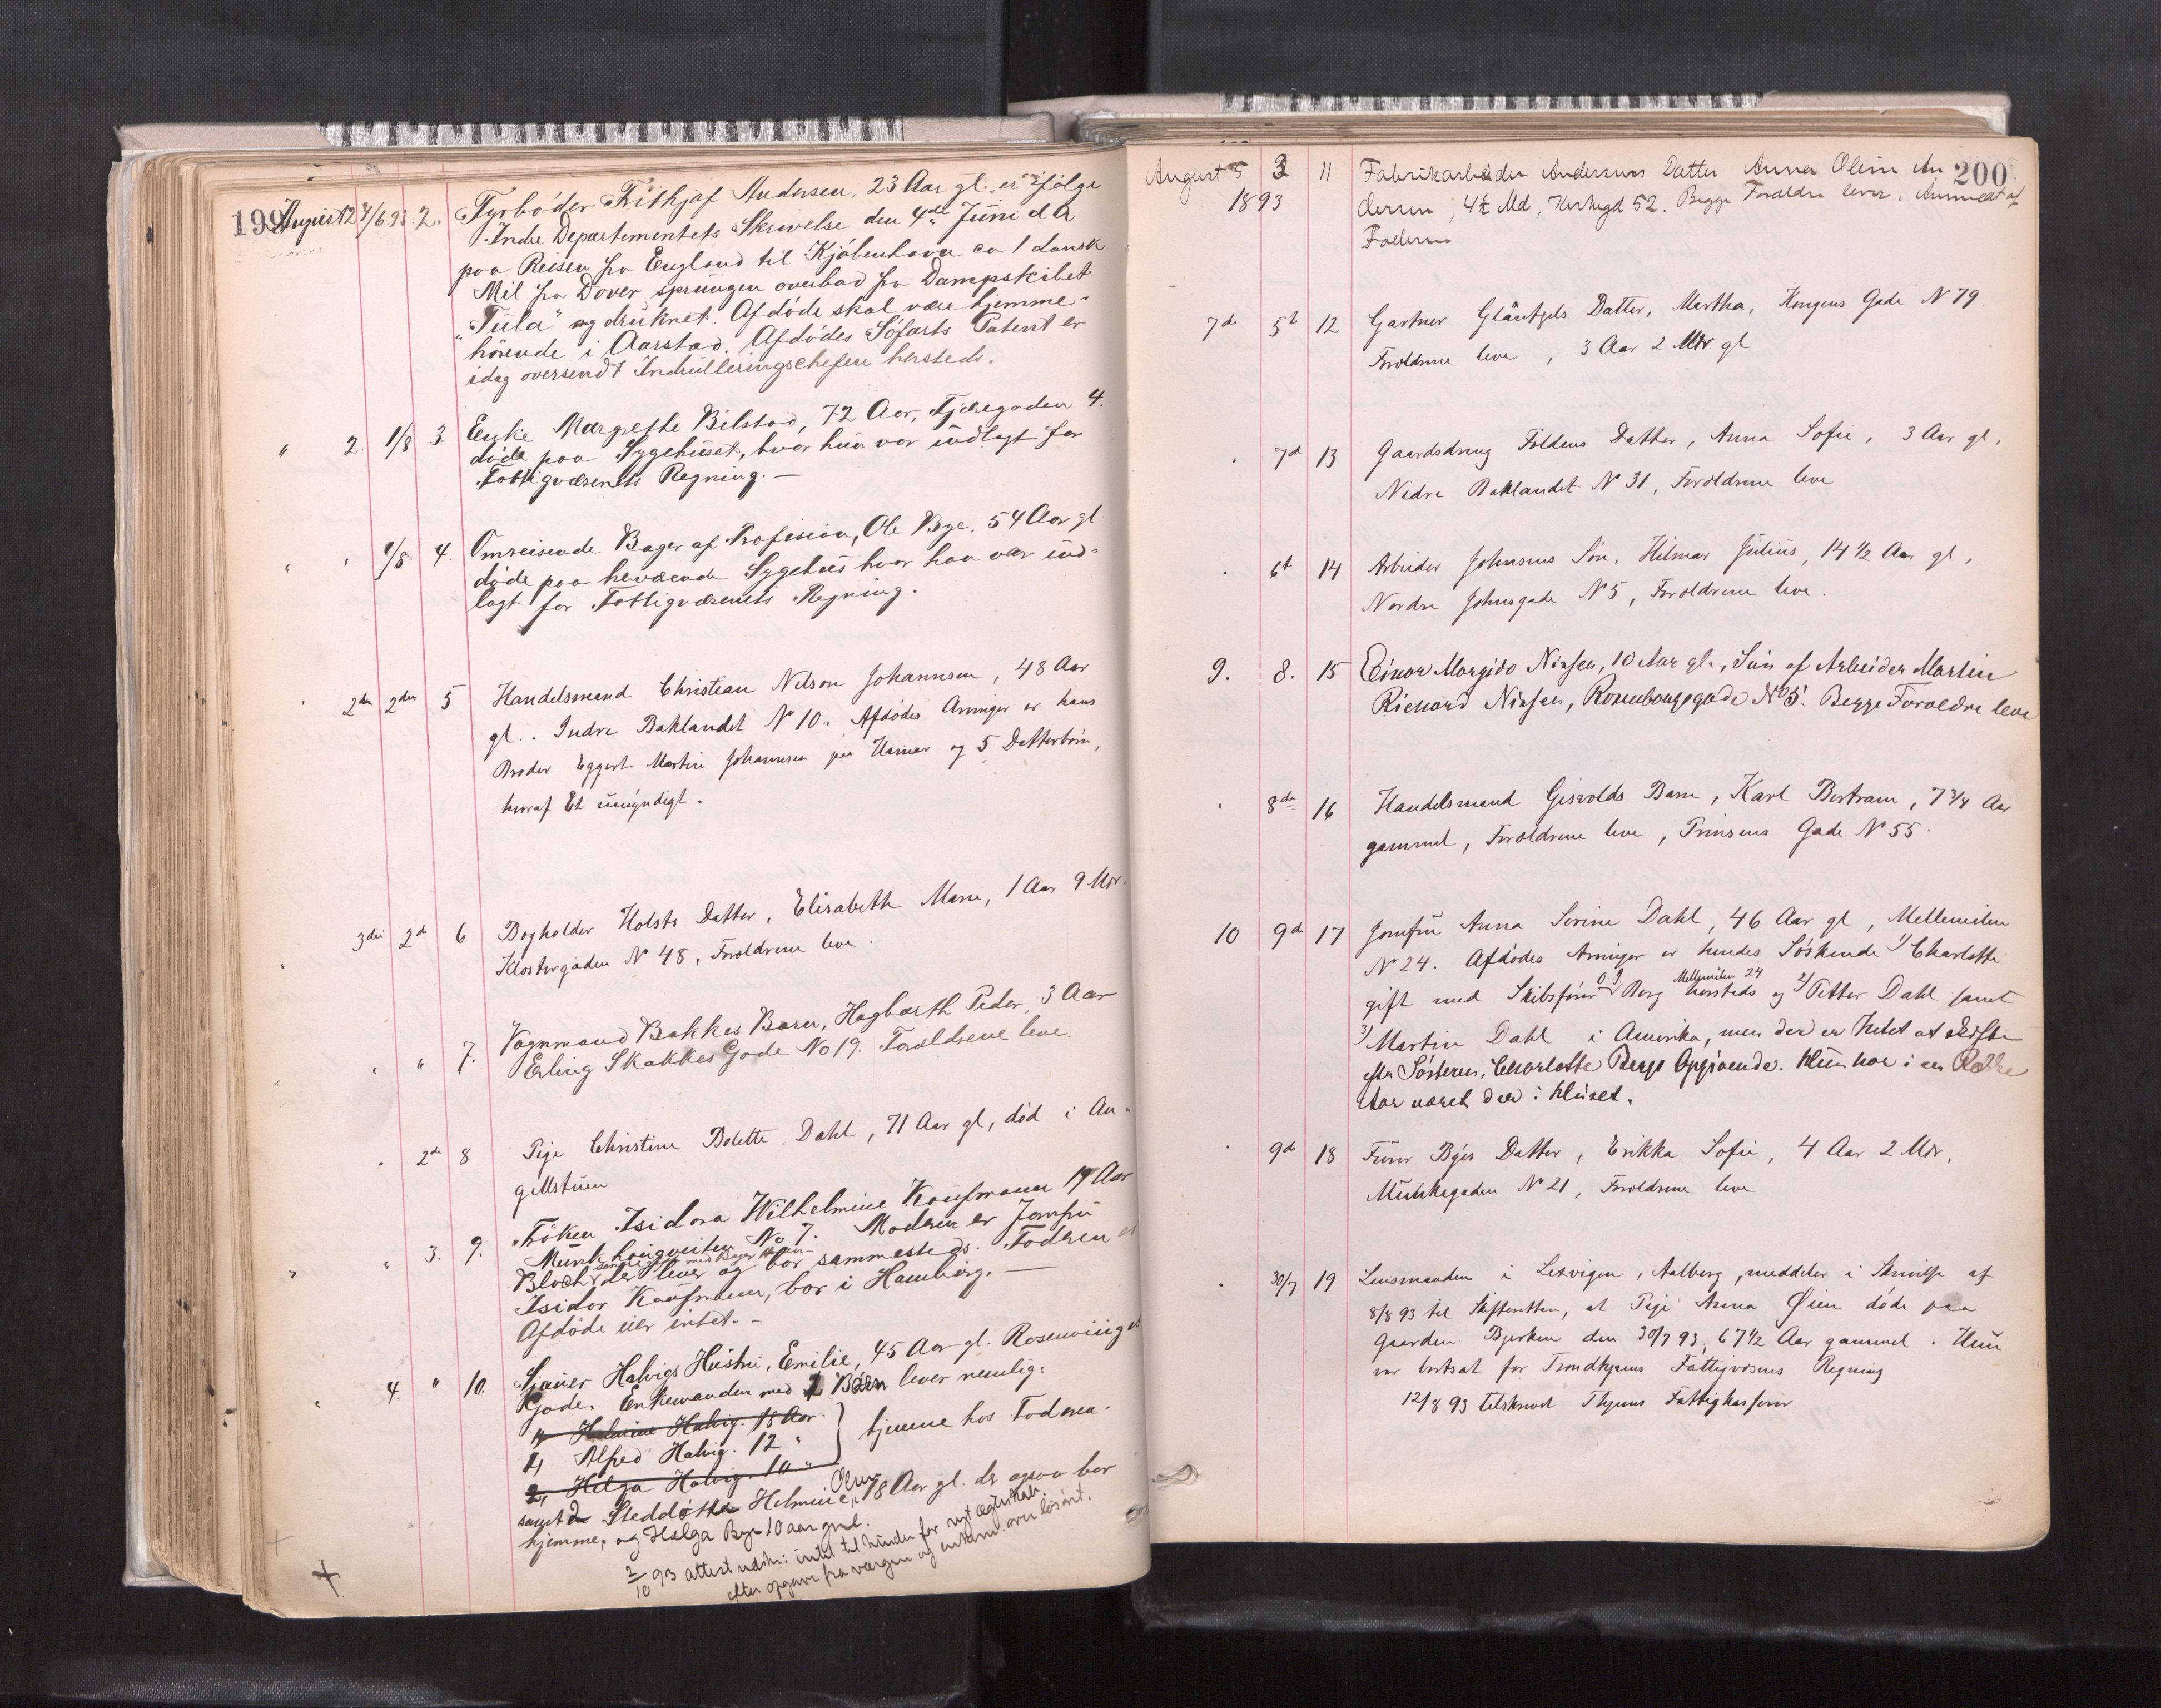 199
August 2 4/6.93 2. Fyrbøder Frithjof Andersen. 23 Aar gl. er ifølge
Indre Departementets Skrivelse den 4de Juni d A
paa Reisen fra England til Kjøbenhavn ca 1 dansk
Mil fra Dover sprungen overbord fra Dampskibet
"Tula" og druknet. Afdøde skal være hjemme-
hørende i Aarstad. Afdødes Søfarts Patent er
idag oversendt Indrulleringschefen hersteds.
" 2. 1/8 3. Enke Margrethe Bilstad, 72 Aar, Fjæregaden 4.
døde paa Sygehuset, hvor hun var indlagt for
Fattigvæsenets Regning. —
" " 1/8. 4. Omreisende Bager af Profession, Ole Bye. 54 Aar gl
døde paa herværende Sygehus hvor han var ind-
lagt for Fattigvæsenets Regning.
" 2den 2den 5 Handelsmand Christian Nelson Johannsen, 48 Aar
gl.. Indre Baklandet No 10. Afdødes Arvinger er hans
Broder Eggert Martin Johannsen paa Hamar og 5 Datterbørn,
hvoraf Et umyndigt.
" 3die 2d 6 Bogholder Holsts Datter, Elisabeth Marie, 1 Aar 9 Mdr.
Klostergaden No 48, Forældrene leve.
" " " 7. Vognmand Bakkes Barn, Hagbarth Peder, 3 Aar
Erling Skakkes Gade No 19. Forældrene leve.
" 2de 8 Pige Christine Bolette Dahl, 71 Aar gl, død i An-
gellstuen
" " 3. 9. Frøken Isidora Wilhelmine Kaufmann 19 Aar
Munkhaugveiten No 7. Moderen er Jomfru
Bloch der lever og bor sammesteds. Faderen er
Isidor Kaufmann, bor i Hamburg. —
Afdøde eier intet. -
" 4. " 10. Sjauer Halvigs Hustru, Emilie, 45 Aar gl. Rosenvinges
Gade. Enkemanden med 1 Barn lever nemlig:
1, Helmine Halvig. 18 Aar.
1, Alfred Halvig. 12 " } hjemme hos Faderen.
2, Helga Halvig. 10 "
samt 2 Steddøttre Helmine Olsen 18 Aar gl. der ogsaa bor
hjemme, og Helga Bye 10 aar gml.
2/10 93 attest udst.: intet til hinder for nyt ægteskab.
efter opgave fra værgen og enkem. over løsøret.
200
August 5 3 11 Fabrikarbeider Andersens Datter Anna Oline An
1893 dersen, 4½ Md, Kirkegd 52. Begge Forældre lever. Anmeldt af
Faderen
7de 5t 12 Gartner Gläntzels Datter, Martha, Kongens Gade No 79
Forældrene leve, 3 Aar 2 Mdr gl
" 7d 13 Gaardsdreng Foldens Datter, Anna Sofie, 3 Aar gl,
Nedre Baklandet No 31, Forældrene leve
" 6t 14 Arbeider Johnsens Søn, Hilmar Julius, 14 ½ Aar gl,
Nordre Johnsgade No 5, Forældrene leve.
9. 8. 15 Einar Margido Nissen, 10 Aar gl., Søn af Arbeider Martin
Richard Nissen, Rosenborggade No 5. Begge Forældre leve
" 8de 16 Handelsmand Gisvolds Barn, Karl Bertram, 7 3/4 Aar
gammel, Forældrene leve, Prinsens Gade No 55.
10 9d 17 Jomfru Anna Serine Dahl, 46 Aar gl, Mellemilen
No 24. Afdødes Arvinger er hendes Søskende 1) Charlotte
gift med Skibsfører O J Berg Mellemilen 24 hersteds og 2) Petter Dahl samt
3) Martin Dahl i Amerika, men der er Intet at skifte
efter Søsteren, Charlotte Bergs Opgivende. Hun har i en Række
Aar været der i Huset.
" 9de 18 Fører Byes Datter, Erikka Sofie, 4 Aar 2 Mdr,
Munkegaden No 21, Forældrene leve
" 30/7 19 Lensmanden i Leksvigen, Aalberg, meddeler i Skrivelse af
8/8 93 til Skifteretten, at Pige Anna Øien døde paa
Gaarden Bjerken den 30/7 93, 67 ½ Aar gammel. Hun
var bortsat for Trondhjems Fattigvæsens Regning
12/8 93 tilskrevet Thjems Fattigkasserer